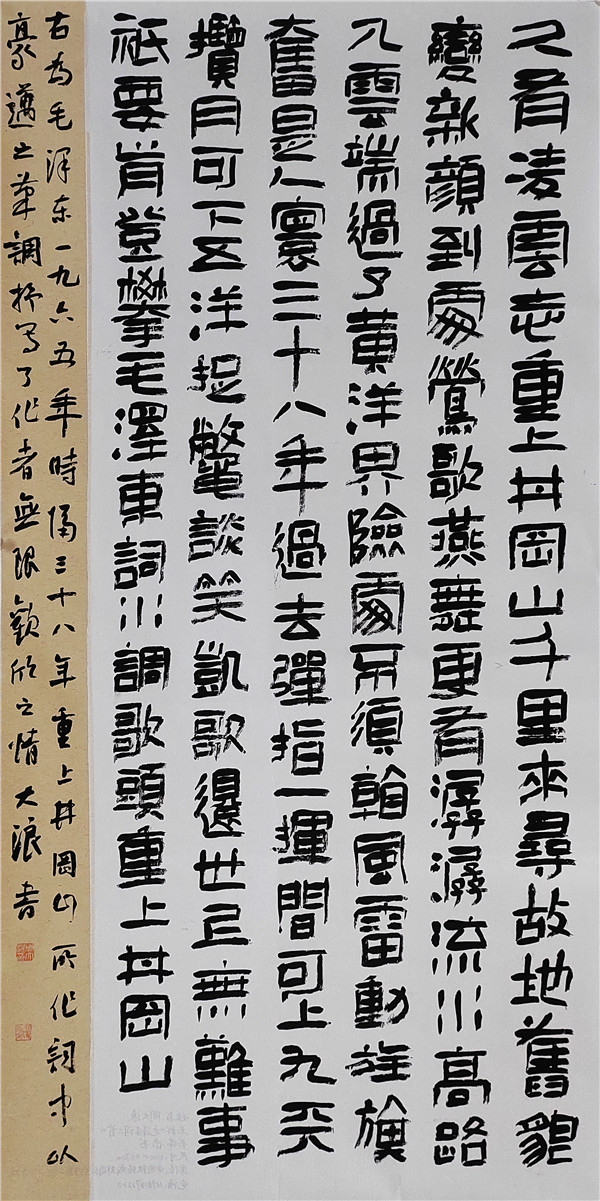 久有凌雲志重上井岡山千里來尋故地舊貌
變新顏到處鶯歌燕舞更有潺潺流水高路
入雲端過了黃洋界險處不須看風雷動旌旗
奮是人寰三十八年過去彈指一揮間可上九天
攬月可下五洋捉鼈談笑凱歌還世上無難事
祇要肯登攀毛澤東詞水調歌頭重上井岡山
右为毛泽东一九六五年時隔三十八年重上井岡山所作詞中以
豪邁之筆調抒写了作者無限歡欣之情大浪書